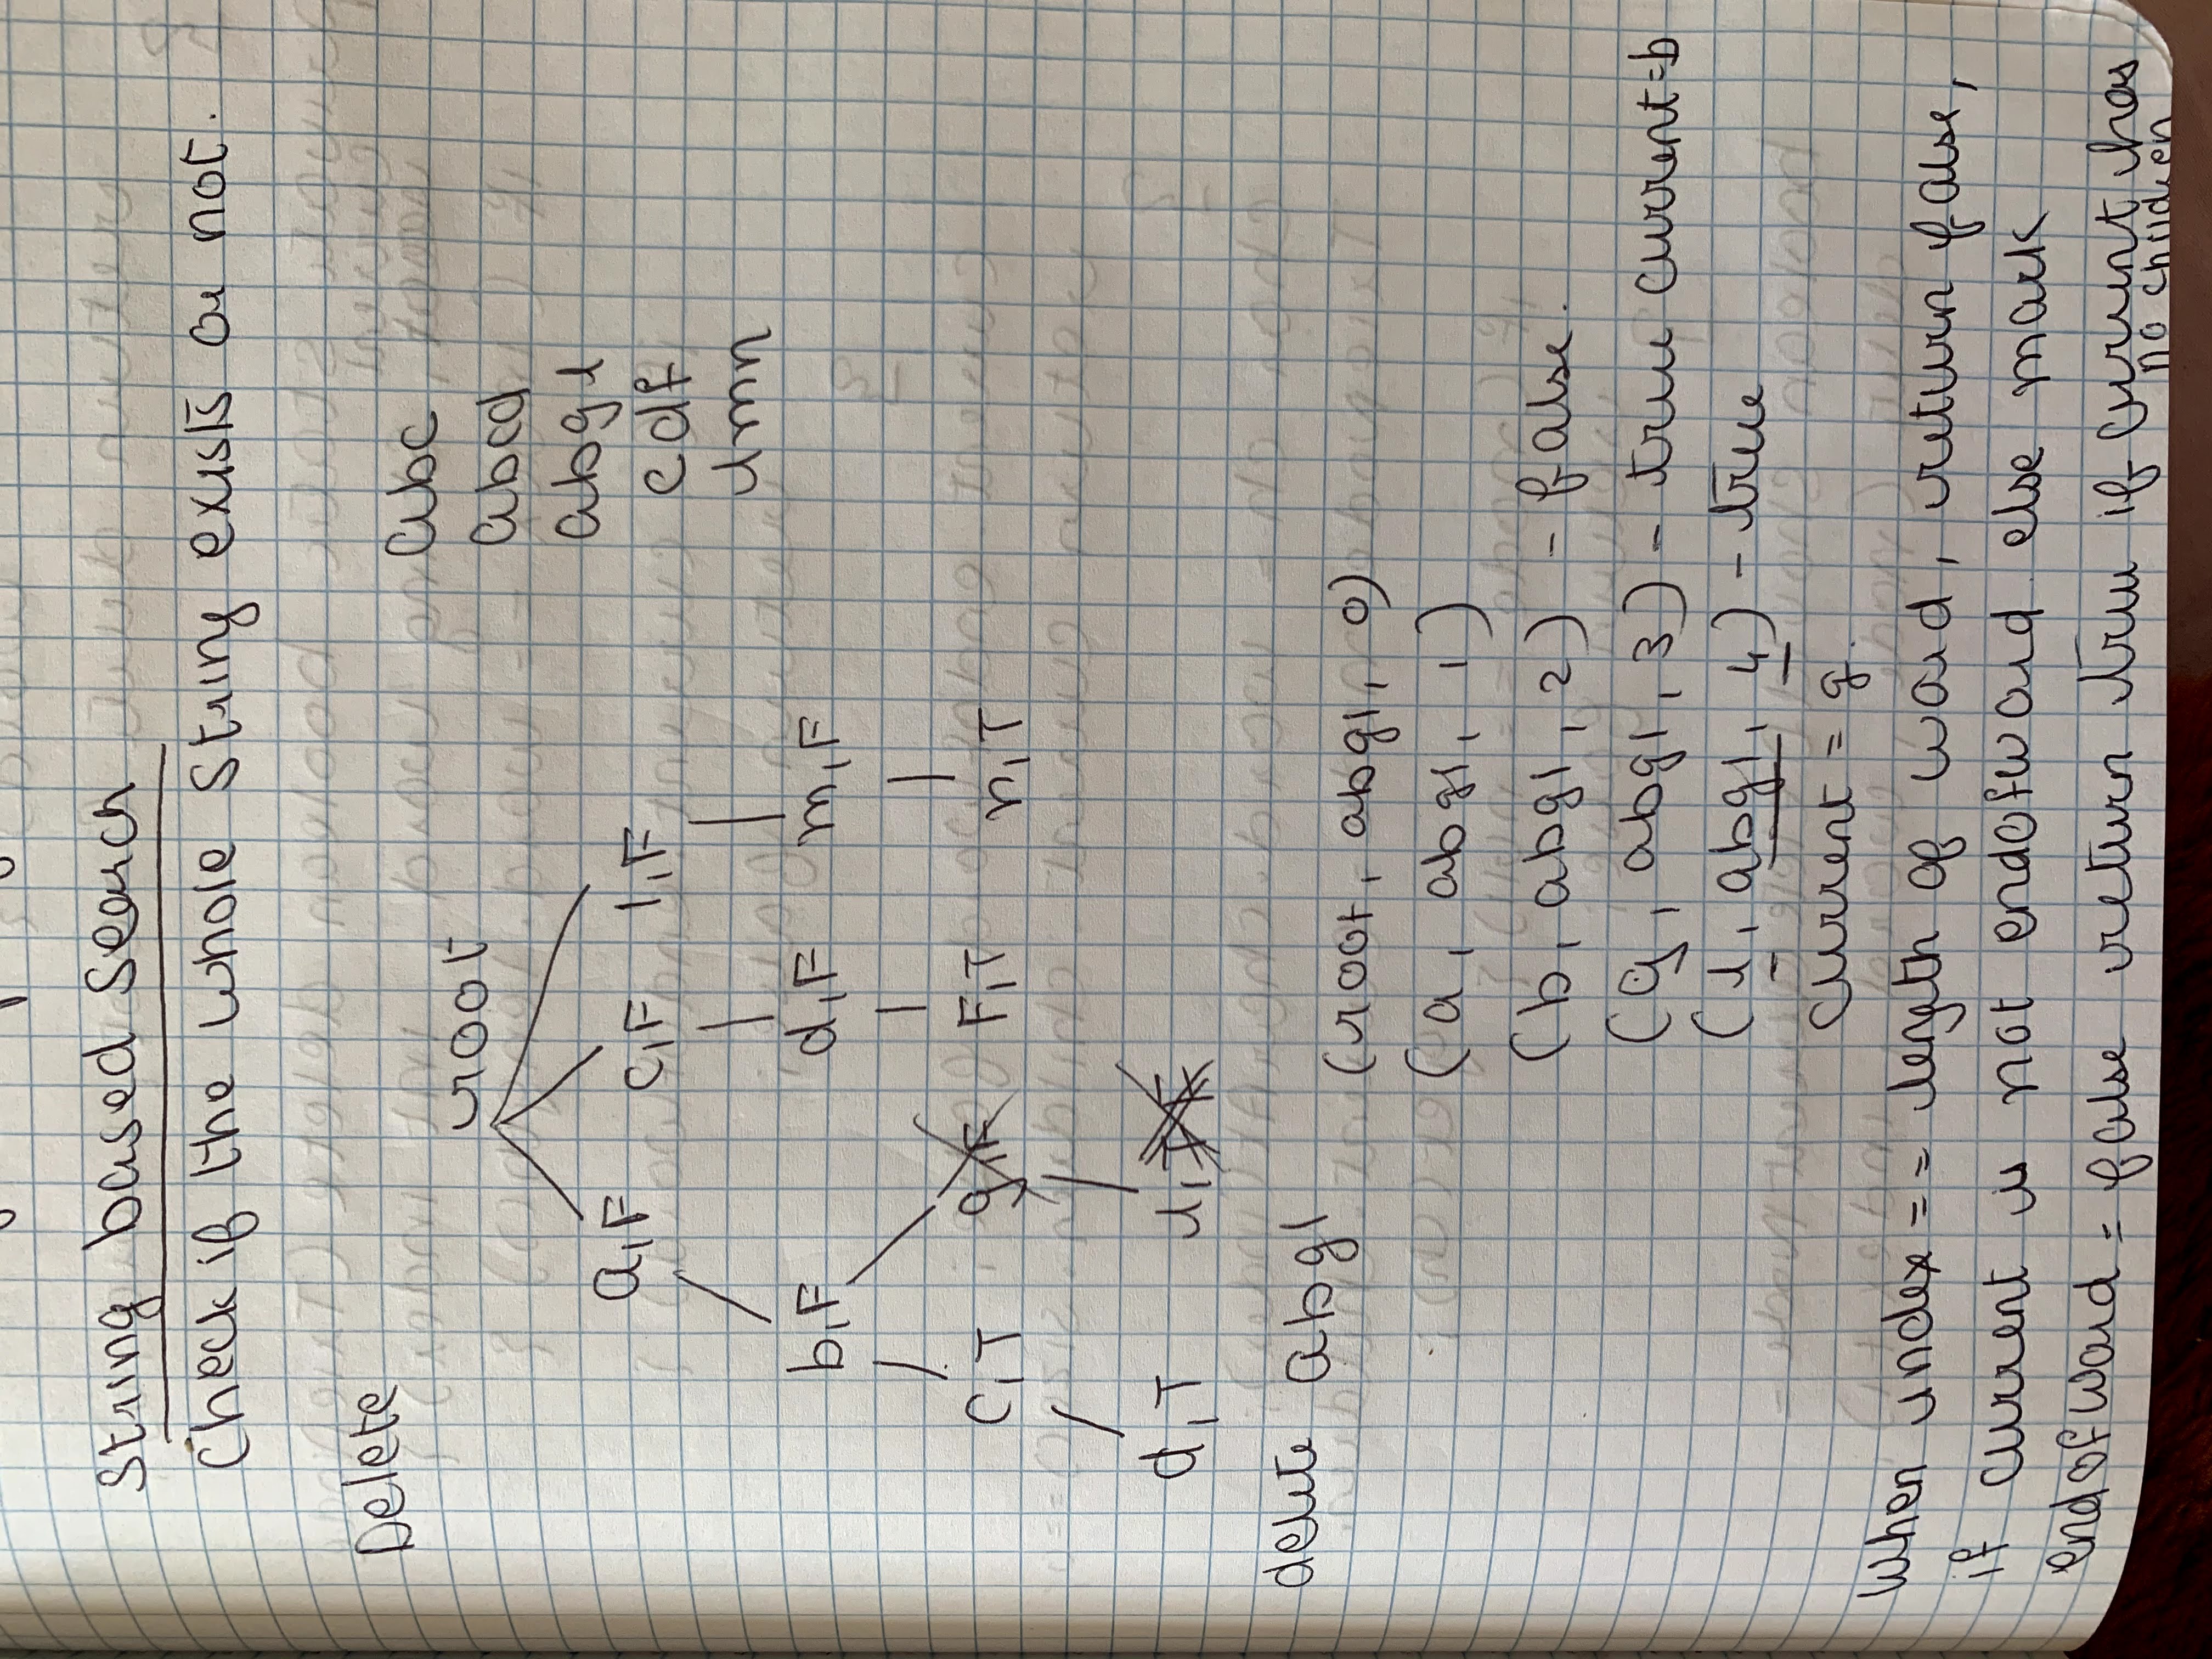 String based Search
Check if the whole String exists or not.
Delete
abc
abcd
abgl
cdf
lmn
root
a,F c,F l,F
b,F d,F m,F
C,T g,F F,T n,T
d,T l,T F
delete abgl
(root, abgl, 0)
(a, abgl, 1)
(b, abgl, 2) - false.
(g, abgl, 3) - true current=b
(l, abgl, 4) - true
current = g.
When index == length of word, return false,
if current is not endofword else mark
endofword = false return true if current has
no children